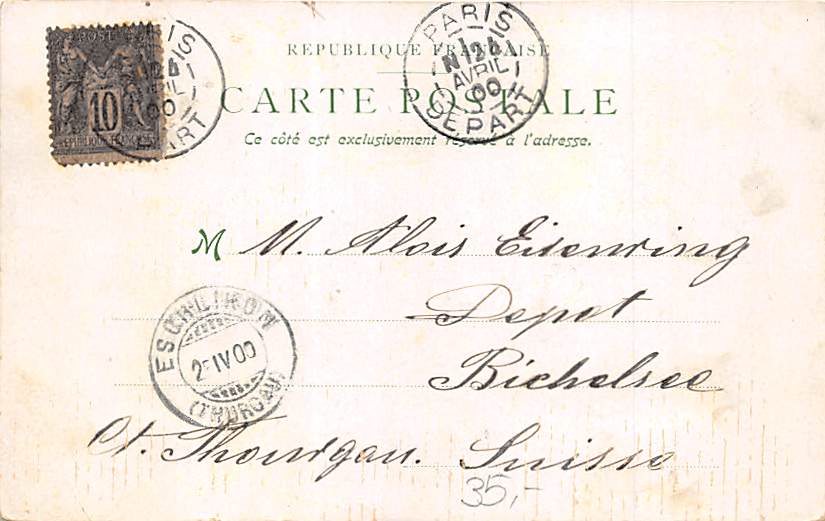 POSTES
10
RÉPUBLIQUE FRANÇAISE
PARIS
12
AVRIL
00
DEPART
RÉPUBLIQUE FRANÇAISE
CARTE POSTALE
Ce côté est exclusivement réservé à l'adresse.
M M. Alois Eisenring
Depot
Bichelsee
Ct. Thourgau. Suisse
ESCHLIKON
2-IV 00
(THURGAU)
35,-